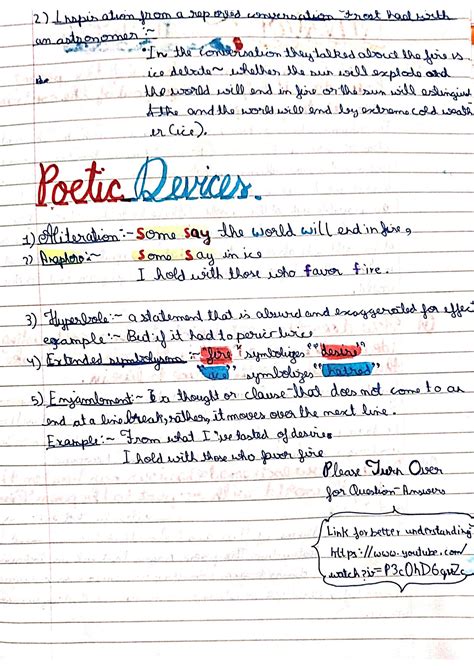 2) Inspiration from a reported conversation Frost had with
an astronomer :~
"In the conversation they talked about the fire vs
ice debate~ whether the sun will explode and
the world will end in fire or the sun will extinguish
& the and the world will end by extreme cold weath
er (ice).
Poetic Devices.
1) Aliteration:- Some say the world will end in fire,
2) Anaphora:~ Some say in ice
I hold with those who favor fire.
3) Hyperbole :~ a statement that is absurd and exaggerated for effec
example :~ But if it had to perish twice
4) Extended symbolysm :~ "fire" symbolizes "desire"
"ice" symbolizes "hatred"
5) Enjambment:~ Is a thought or clause that does not come to an
end at a line break, rather, it moves over the next line.
Example :~ From what I've tasted of desire
I hold with those who favor fire
Please Turn Over
for Question-Answers
Link for better understanding
https://www.youtube.com/